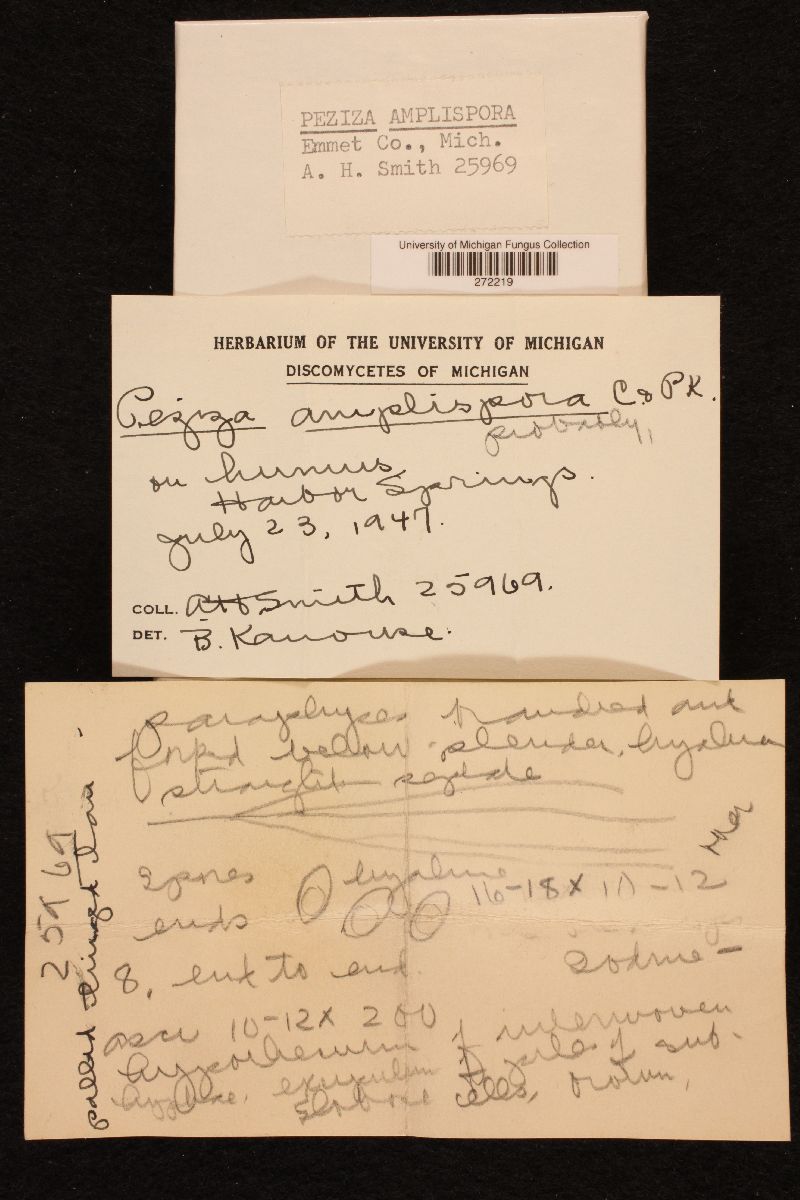 PEZIZA AMPLISPORA
Emmet Co., Mich.
A. H. Smith 25969
University of Michigan Fungus Collection
272219
HERBARIUM OF THE UNIVERSITY OF MICHIGAN
DISCOMYCETES OF MICHIGAN
Peziza amplispora C & PK.
probably,
on humus
Harbor Springs.
July 23, 1947.
COLL. AHSmith 25969.
DET. B. Kanouse.
paraphyses branched and
forked below slender, hyaline
straight septate
Spores hyaline 16-18 x 10-12
ends
8, end to end.
Iodine -
asci 10-12 x 200
hypothecium of interwoven
hyphae, excipulum of pile of sub-
globose cells, brown,
25969
pallid